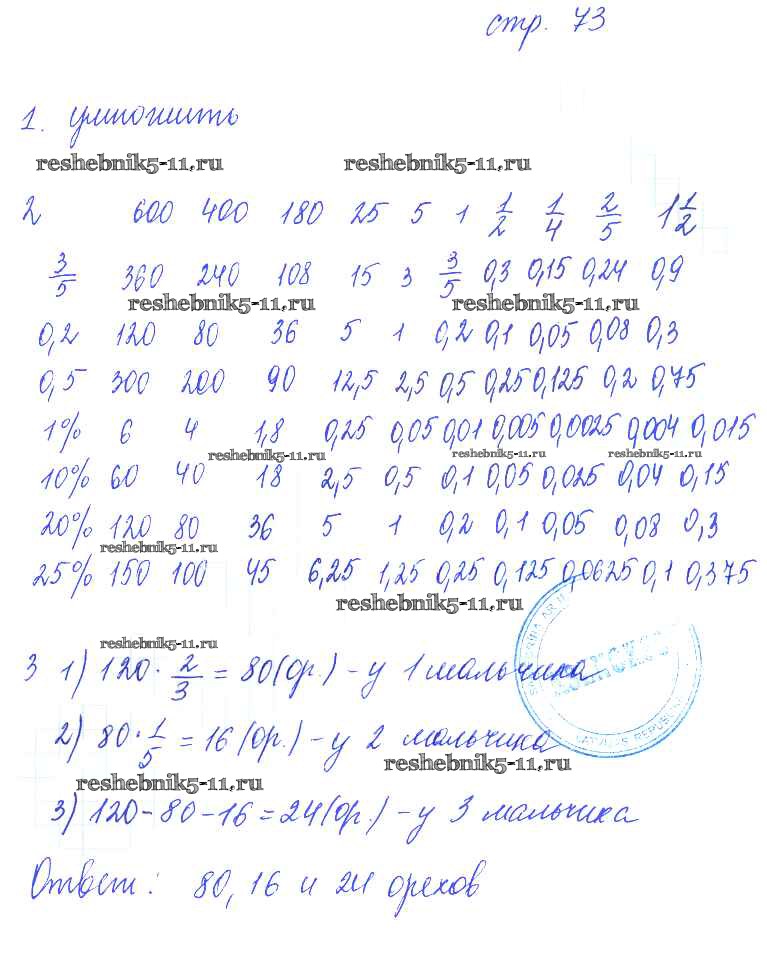 стр. 73
1. умножить
reshebnik5-11.ru reshebnik5-11.ru
2 600 400 180 25 5 1 1/2 1/4 2/5 1 1/2
3/5 360 240 108 15 3 3/5 0,3 0,15 0,24 0,9
reshebnik5-11.ru reshebnik5-11.ru
0,2 120 80 36 5 1 0,2 0,1 0,05 0,08 0,3
0,5 300 200 90 12,5 2,5 0,5 0,25 0,125 0,2 0,75
1% 6 4 1,8 0,25 0,05 0,01 0,005 0,0025 0,004 0,015
reshebnik5-11.ru reshebnik5-11.ru reshebnik5-11.ru
10% 60 40 18 2,5 0,5 0,1 0,05 0,025 0,04 0,15
20% 120 80 36 5 1 0,2 0,1 0,05 0,08 0,3
reshebnik5-11.ru
25% 150 100 45 6,25 1,25 0,25 0,125 0,0625 0,1 0,375
reshebnik5-11.ru
reshebnik5-11.ru
3 1) 120 · 2/3 = 80 (ор.) - у 1 мальчика
2) 80 · 1/5 = 16 (ор.) - у 2 мальчика
reshebnik5-11.ru reshebnik5-11.ru
3) 120 - 80 - 16 = 24 (ор.) - у 3 мальчика
Ответ: 80, 16 и 24 орехов